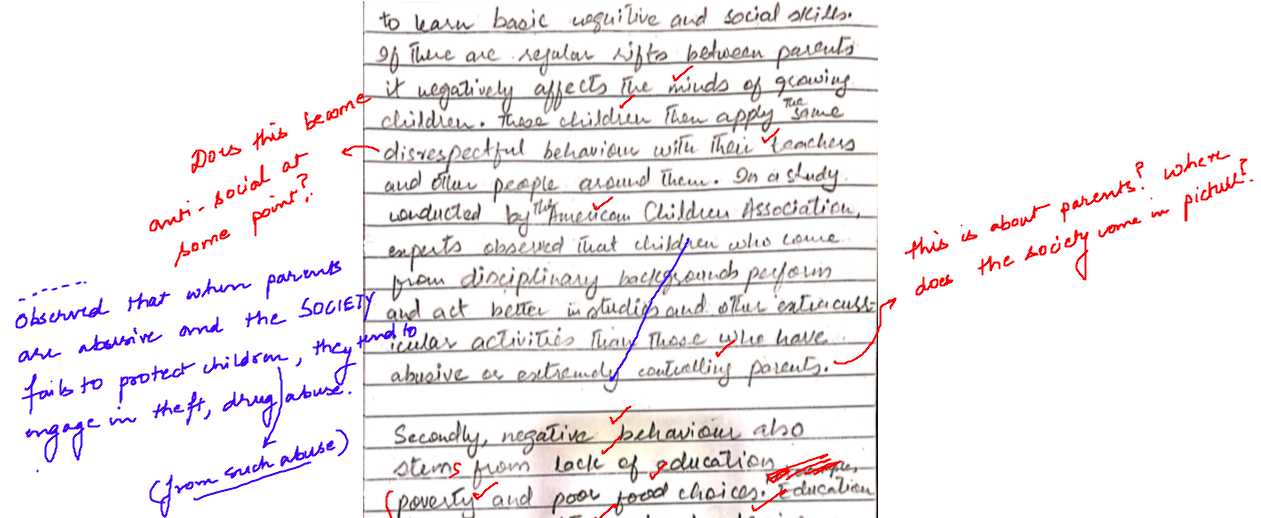 to learn basic cognitive and social skills.
If there are regular rifts between parents
it negatively affects the minds of growing
children. These children then apply the same
disrespectful behaviour with their teachers
and other people around them. In a study
conducted by the American Children Association,
experts observed that children who come
from disciplinary backgrounds perform
and act better in studies and other extracurr-
icular activities than those who have
abusive or extremely controlling parents.
Secondly, negative behaviour also
stems from lack of education
(poverty and poor food choices. Education
Does this become
anti-social at
some point?
observed that when parents
are abusive and the SOCIETY
fails to protect children, they tend to
engage in theft, drug abuse.
(from such abuse)
this is about parents? where
does the society come in picture?